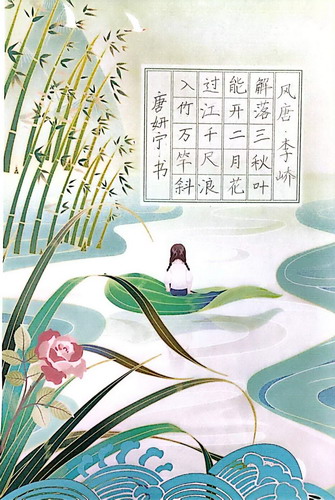 风 唐·李峤
解落三秋叶
能开二月花
过江千尺浪
入竹万竿斜
唐妍宁·书